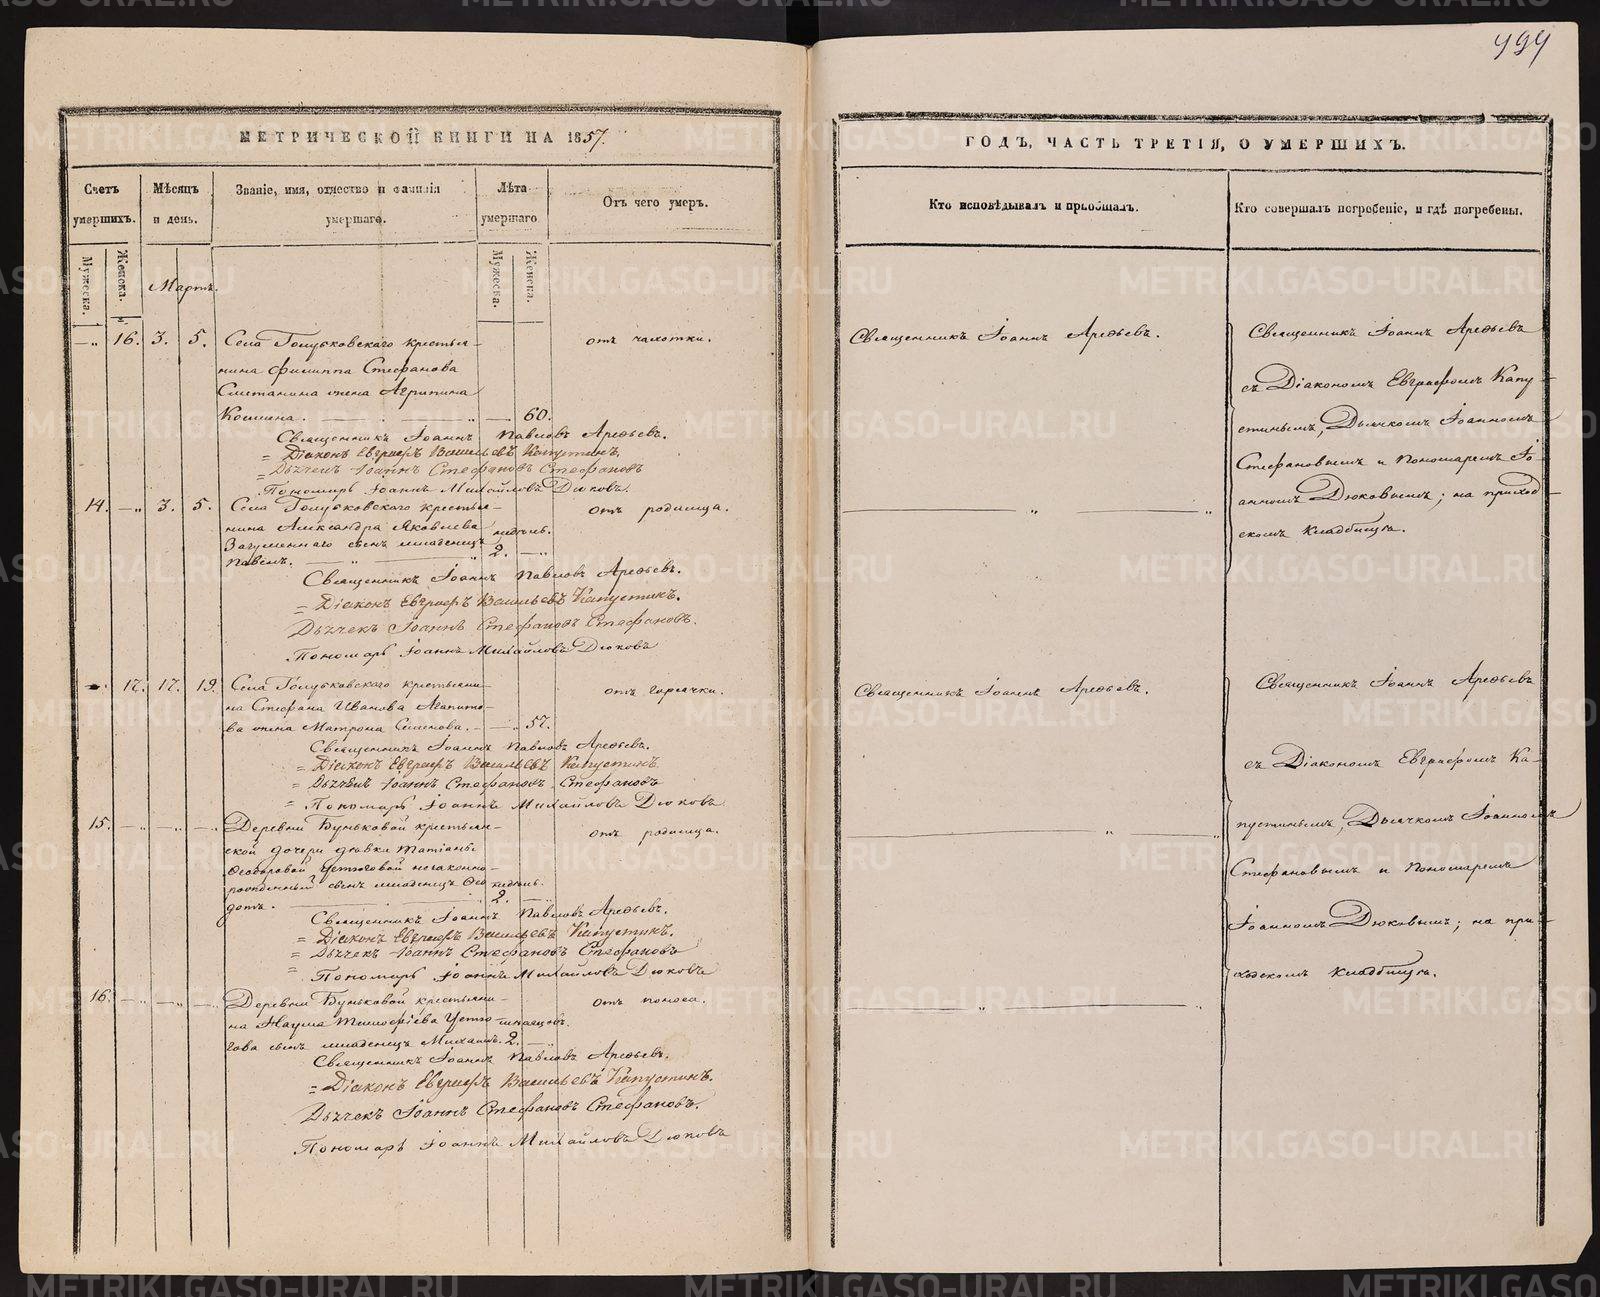 499
МЕТРИЧЕСКОЙ КНИГИ НА 1857.
Счетъ умершихъ.
Мѣсяцъ и день.
Званіе, имя, отчество и фамилія умершаго.
Лѣта умершаго
Отъ чего умеръ.
Мужеска.
Женска.
Мартъ.
Мужеска.
Женска.
16. 3. 5. Села Голубковскаго крестья-
нина Филиппа Стефанова
Сметанина жена Агрипина
60.
отъ чахотки.
Священникъ Іоаннъ Павловъ Арефьевъ.
Діаконъ Евграфъ Васильевъ Капустинъ.
Дьячекъ Іоаннъ Стефановъ Стефановъ
Пономарь Іоаннъ Михайловъ Дюковъ.
14. 3. 5. Села Голубковскаго крестья-
нина Александра Яковлева
сынъ младенецъ
Павелъ.
недѣль.
2.
отъ родимца.
Священникъ Іоаннъ Павловъ Арефьевъ.
Діаконъ Евграфъ Васильевъ Капустинъ.
Дьячекъ Іоаннъ Стефановъ Стефановъ.
Пономарь Іоаннъ Михайловъ Дюковъ
17. 17. 19. Села Голубковскаго крестьяни-
на Стефана Иванова Агапито-
ва жена Матрона Семенова. 57.
отъ горячки.
Священникъ Іоаннъ Павловъ Арефьевъ.
Діаконъ Евграфъ Васильевъ Капустинъ
Дьячекъ Іоаннъ Стефановъ Стефановъ
Пономарь Іоаннъ Михайловъ Дюковъ
15. Деревни Буньковой крестьян-
ской дочери дѣвки Татіаны
незаконно-
рожденный сынъ младенецъ Ѳео
дотъ.
недѣль.
2.
отъ родимца.
Священникъ Іоаннъ Павловъ Арефьевъ.
Діаконъ Евграфъ Васильевъ Капустинъ.
Дьячекъ Іоаннъ Стефановъ Стефановъ
Пономарь Іоаннъ Михайловъ Дюковъ
16. Деревни Буньковой крестьяни-
на Наума Тимофѣева
сынъ младенецъ Михаилъ. 2.
отъ поноса.
Священникъ Іоаннъ Павловъ Арефьевъ.
Діаконъ Евграфъ Васильевъ Капустинъ.
Дьячекъ Іоаннъ Стефановъ Стефановъ.
Пономарь Іоаннъ Михайловъ Дюковъ
ГОДЪ, ЧАСТЬ ТРЕТІЯ, О УМЕРШИХЪ.
Кто исповѣдывалъ и пріобщалъ.
Кто совершалъ погребеніе, и гдѣ погребены.
Священникъ Іоаннъ Арефьевъ.
Священникъ Іоаннъ Арефьевъ
съ Діакономъ Евграфомъ Капу-
стинымъ, Дьячкомъ Іоанномъ
Стефановымъ и Пономаремъ Іо-
анномъ Дюковымъ; на приход-
скомъ кладбищѣ.
Священникъ Іоаннъ Арефьевъ.
Священникъ Іоаннъ Арефьевъ
съ Діакономъ Евграфомъ Ка-
пустинымъ, Дьячкомъ Іоанномъ
Стефановымъ и Пономаремъ
Іоанномъ Дюковымъ; на при-
ходскомъ кладбищѣ.
METRIKI.GASO-URAL.RU